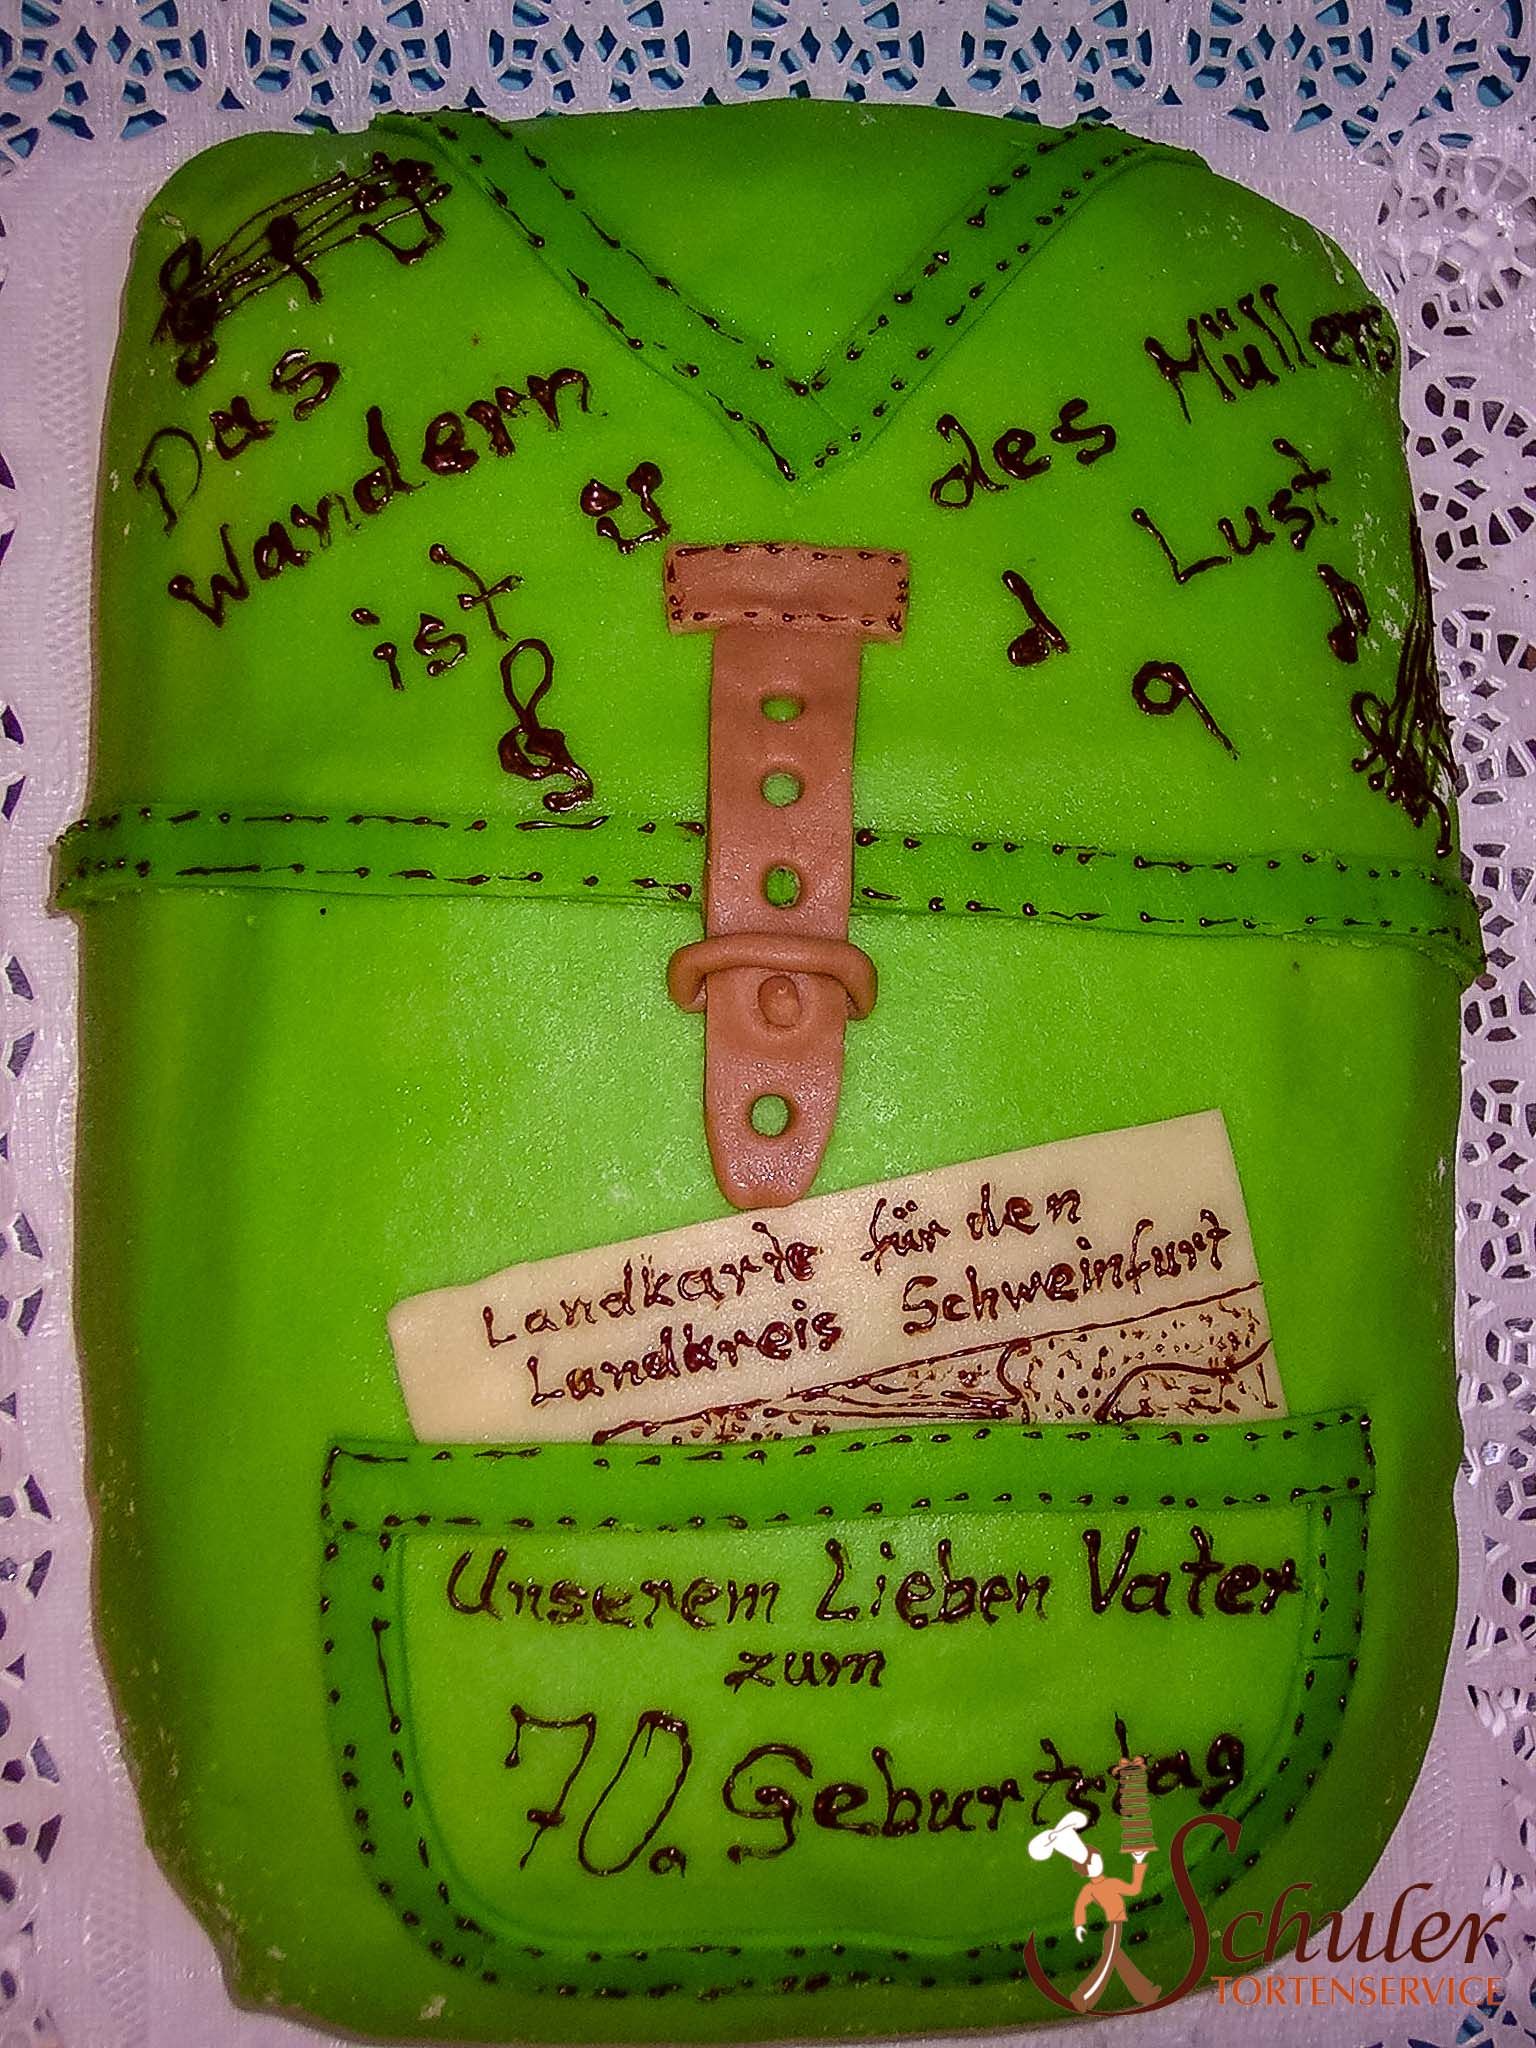 Das
Wandern
ist
des Müllers
Lust
Landkarte für den
Landkreis Schweinfurt
Unserem Lieben Vater
zum
70. Geburtstag
Schuler
TORTENSERVICE